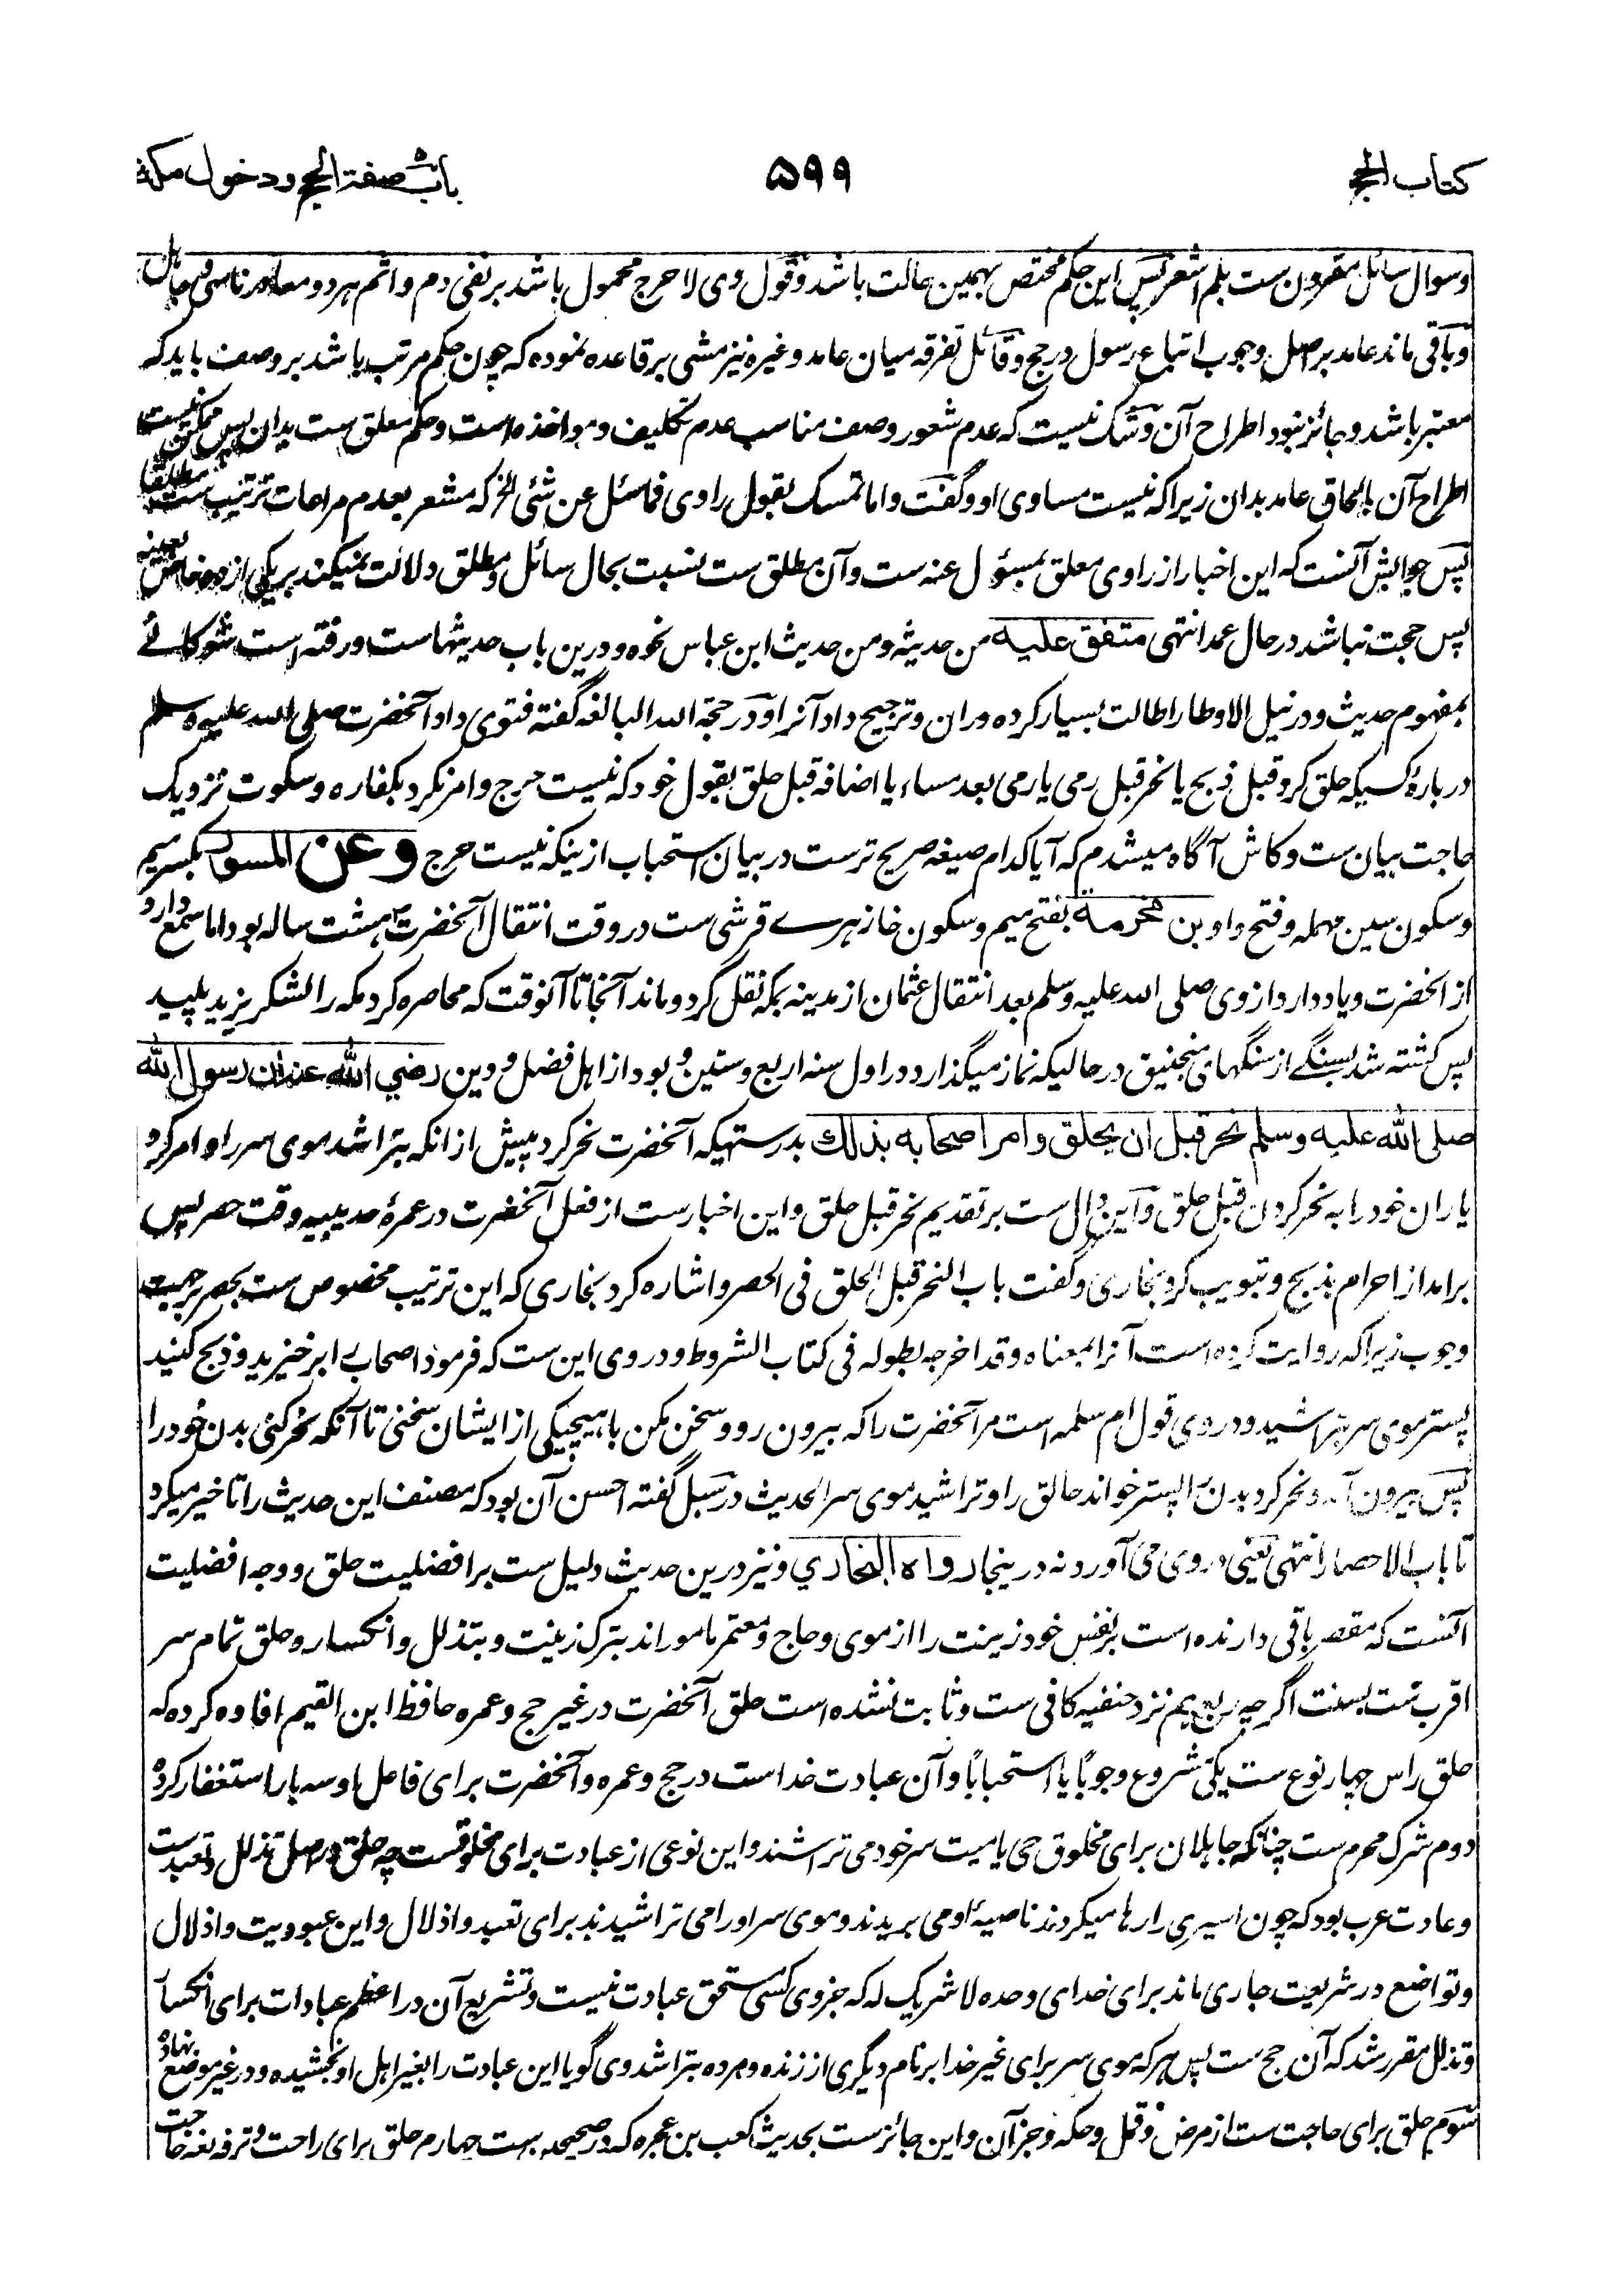 کتاب الحج
۵۹۹
باب صفة الحج ودخول مکة
وسوال سائل مقرون ست بلم اشعر پس این حکم مختص بهمین حالت باشد و قول وی لا حرج محمول باشد بر نفی دم و اثم هر دو معا در ناسی و جاهل
و باقی ماند عامد بر اصل وجوب اتباع رسول در حج و قائل تفرقه میان عامد و غیره نیز مشی بر قاعده نموده که چون حکم مرتب باشد بر وصف باید که
معتبر باشد و جائز نبود اطراح آن و شک نیست که عدم شعور وصف مناسب عدم تکلیف و مواخذه است و حکم معلق ست بدان پس ممکن نیست
اطراح آن بالحاق عامد بدان زیرا که نیست مساوی او و گفت و اما تمسک بقول راوی فما سئل عن شئی الخ که مشعر بعدم مراعات ترتیب ست مطلقا
پس جوابش آنست که این اخبار از راوی معلق بمسئول عنه ست و آن مطلق ست بنسبت بحال سائل و مطلق دلالت نمیکند بر یکی از دو خاص بعینه
پس حجت نباشد در حال عمد انتهی متفق علیه من حدیثه و من حدیث ابن عباس نحوه و درین باب حدیثها ست و رفته است شوکانے
بمفهوم حدیث و در نیل الاوطار اطالت بسیار کرده دران و ترجیح داد آنرا و در حجة الله البالغه گفته فتوی داد آنحضرت صلی الله علیه وسلم
درباره کسیکه حلق کرد قبل ذبح یا نحر قبل رمی یا رمی بعد مساء یا اضافه قبل حلق بقول خود که نیست حرج و امر نکرد بکفاره و سکوت نزدیک
حاجت بیان ست و کاش آگاه میشدم که آیا کدام صیغه صریح ترست در بیان استحباب ازینکه نیست حرج وعن المسور بکسر میم
و سکون سین مهمله و فتح واو بن مخرمة بفتح میم و سکون خا زهرے قرشی ست در وقت انتقال آنحضرت هشت ساله بود اما سمع دارد
از انحضرت و یاد دارد از وی صلی الله علیه وسلم بعد انتقال عثمان از مدینه بمکه نقل کرد و ماند آنجا تا آنوقت که محاصره کرد مکه را لشکر یزید پلید
پس کشته شد بسنگے از سنگهای منجنیق در حالیکه نماز میگذارد در اول سنه اربع و ستین و بود از اهل فضل و دین رضي الله عنه ان رسول الله
صلی الله علیه وسلم نحر قبل ان یحلق وامر اصحابه بذلك بدرستیکه آنحضرت نحر کرد پیش از انکه بتراشد موی سر را و امر کرد
یاران خود را به نحر کردن قبل حلق و این دال ست بر تقدیم نحر قبل حلق و این اخبارست از فعل آنحضرت در عمرهٔ حدیبیه وقت حصر پس
برامد از احرام بذبح و تبویب کرد بخاری و گفت باب النحر قبل الحلق فی الحصر و اشاره کرد بخاری که این ترتیب مخصوص ست بحصر بر جهت
وجوب زیرا که روایت کرده است آنرا بمعناه و قد اخرجه بطوله فی کتاب الشروط و در وی این ست که فرمود اصحاب را برخیزید و ذبح کنید
پستر موی سر بتراشید و در وی قول ام سلمه است مر آنحضرت را که بیرون رو و سخن مکن با هیچیکی از ایشان سخنی تا آنکه نحر کنی بدن خود را
پس بیرون آمد و نحر کرد بدن را پستر خواند حالق را و تراشید موی سر الحدیث در سبل گفته احسن آن بود که مصنف این حدیث را تاخیر میکرد
تا باب الاحصار انتهی یعنی در وی می آورد نه درینجا رواه البخاري و نیز درین حدیث دلیل ست بر افضلیت حلق و وجه افضلیت
آنست که مقصر باقی دارنده است بر نفس خود زینت را از موی و حاج و معتمر مامور اند بترک زینت و بتذلل و انکسار و حلق تمام سر
اقرب ست بسنت اگرچه ربع هم نزد حنفیه کافی ست و ثابت نشده است حلق آنحضرت در غیر حج و عمره حافظ ابن القیم افاده کرده که
حلق راس چهار نوع ست یکی مشروع وجوبًا یا استحبابًا و آن عبادت خداست در حج و عمره و آنحضرت برای فاعل او سه بار استغفار کرده
دوم شرک محرم ست چنانکه جاهلان برای مخلوق حی یا میت سر خود می تراشند و این نوعی از عبادت برای مخلوقست چه حلق در اصل تذلل و تعبد ست
و عادت عرب بود که چون اسیری را رها میکردند ناصیهٔ او می بریدند و موی سر او را می تراشیدند برای تعبد و اذلال و این عبودیت و اذلال
و تواضع در شریعت جاری ماند برای خدای وحده لا شریک له که جز وی کسی مستحق عبادت نیست و تشریع آن در اعظم عبادات برای انکسار
و تذلل مقرر شد که آن حج ست پس هر که موی سر برای غیر خدا بر نام دیگری از زنده و مرده بتراشد وی گویا این عبادت را بغیر اهل او بخشیده و در غیر موضع نهاده
سوم حلق برای حاجت ست از مرض و قمل و حکه و جز آن و این جائز ست بحدیث کعب بن عجره که در صحیحین ست چهارم حلق برای راحت و ترفه بغیر حاجت